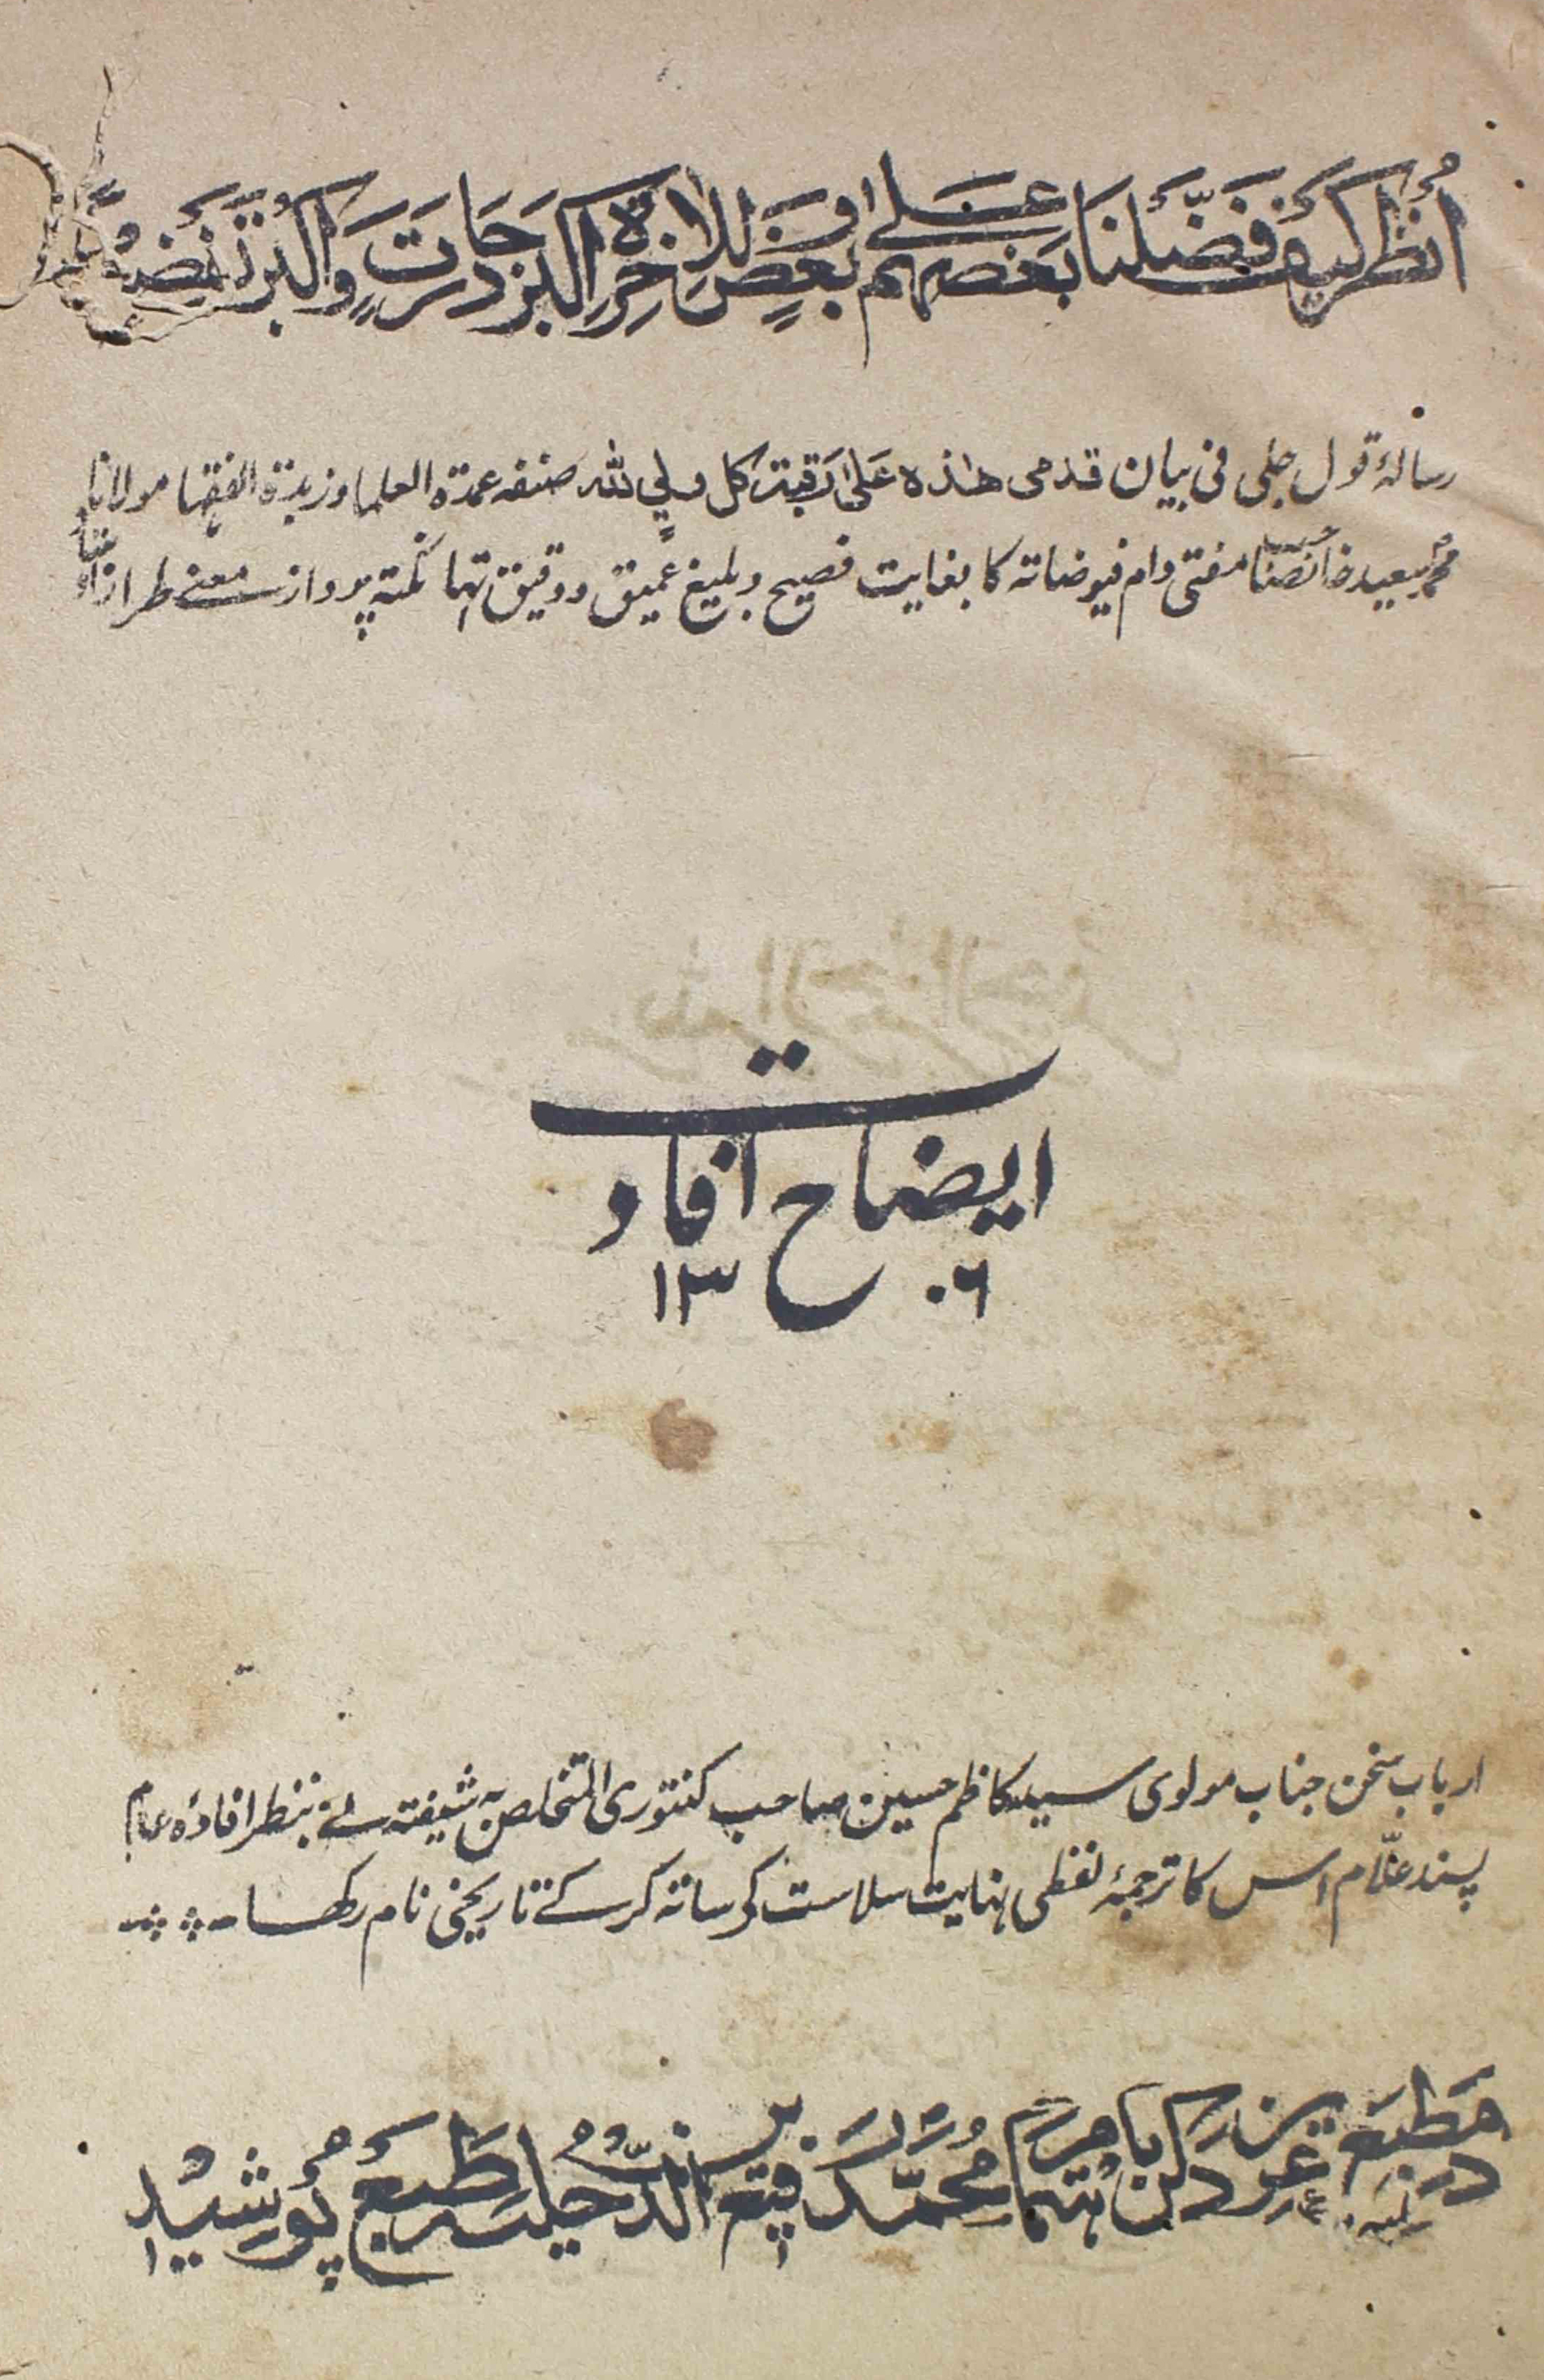 اُنظُر كيفَ فَضَّلنَا بَعضهم عَلى بَعضٍ وَللاخِرة اكبر دَرَجات وَاكبر تَفضيلاً
رسالۂ قول جلی فی بیان قدمی ھٰذہ عَلیٰ رَقبۃ کل ولیٍ للہ صنفہ عمدۃ العلما و زبدۃ الفقہا مولانا
محمد سعید خانصاحب مفتی دام فیوضاتہ کا بغایت فصیح و بلیغ عمیق و دقیق تہا نکتہ پرداز معنے طراز
ایضاح افادت
١٣٠٦
ارباب سخن جناب مولوی سید کاظم حسین صاحب کنتوری المتخلص بہ شیفتہ نے بنظر افادۂ عام
پسند علّام اس کا ترجمۂ لفظی نہایت سلاست کے ساتہ کرکے تاریخی نام رکھا
در مطبع دکن باہتمام محمد طبع پوشید